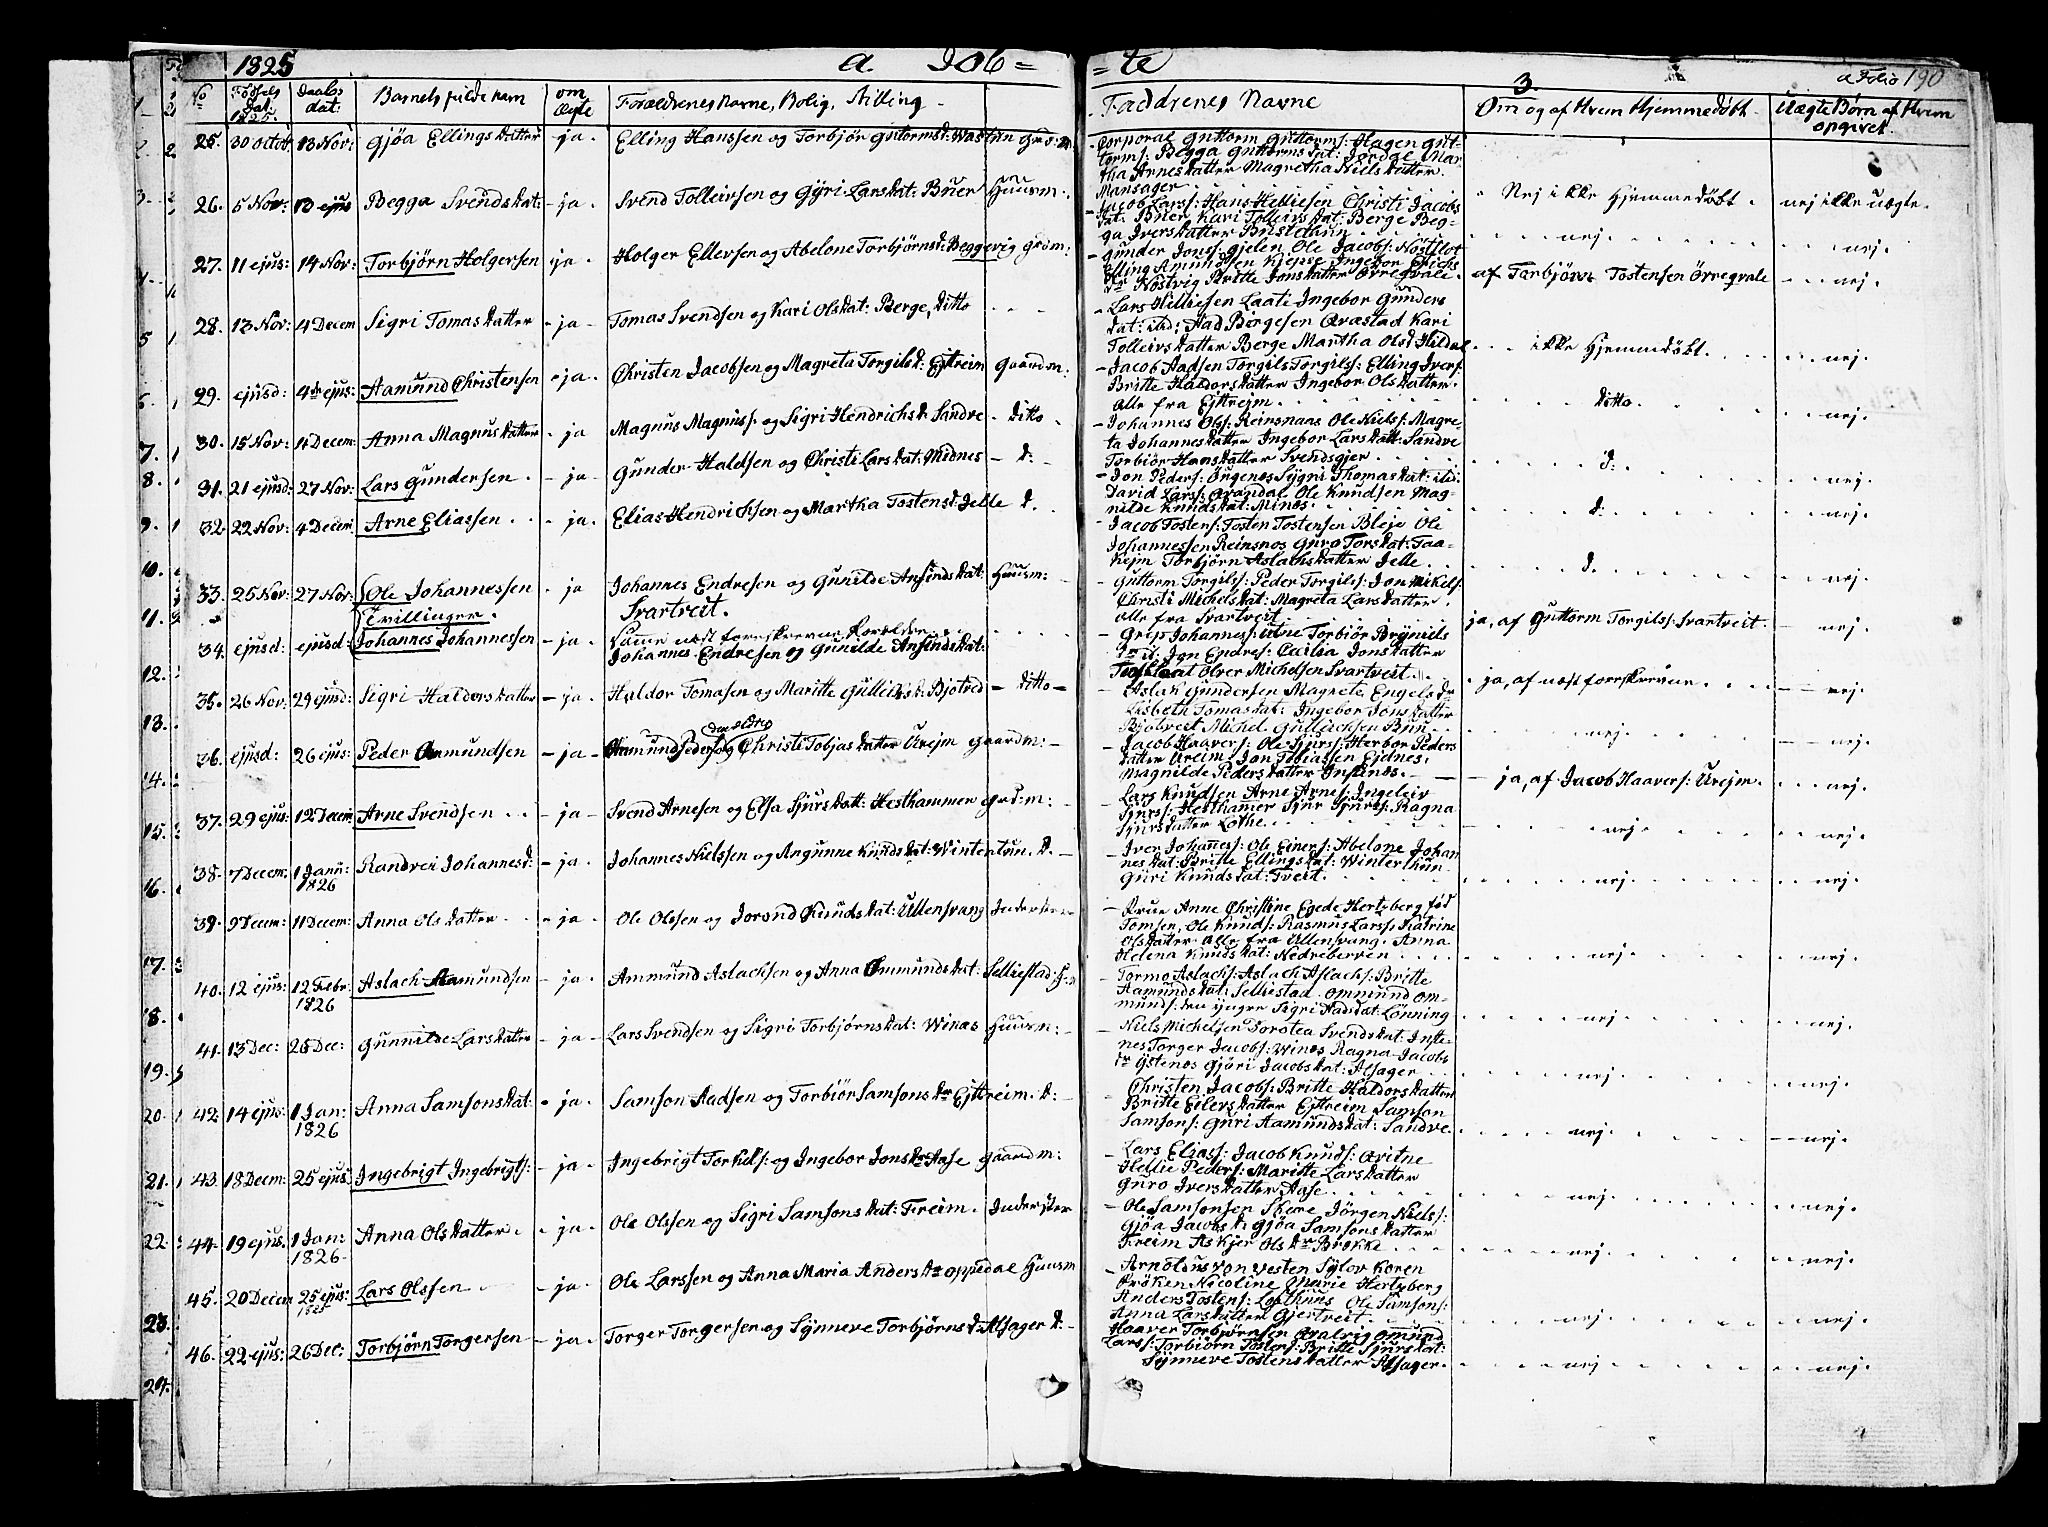 1825 a Døb=
=te a Folio 190
3.
No Fødsels Dat: 1825. Daabs dat: Barnets fulde navn om Ægte Forældrenes Navne, Bolig, Stilling
Faddrenes Navne Om og af Hvem Hjemmedøbt Uægte Børn af Hvem opgivet.
25. 30 octob 13 Nov: Gjøa Ellings datter - ja. Elling Hanssen og Torbjør Gutormsd:
Corporal Guttorm Guttorms: Hagen Gut-
torms: Begga Guttorms dat: Jordal Mar-
tha Arnesdatter Magretha Niels datter.
Mansager
Nej ikke Hjemmedøbt. nej ikke uægte.
26. 5 Nov: 13 ejus Begga Svends dat: - ja. Svend Tolleivsen og Gyri Lars dat: Buer Huusm:
Jacob Lars: Hans Helliesen Christi Jacobs
dat: Buer Kari Tolleivs dat: Berge Beg-
ga Ivers datter
nej. nej.
27. 11 ejus: 14 Nov: Torbjørn Holgersen - ja. Holger Ellersen og Abelone Torbjørnsd: Beggevig Grdm:
Gunder Jons: Gjelen Ole Jacobs:
Elling Amundsen Ingebor Erichs
dr Nøstvig Britte Jonsdatter Ørregvale.
af Torbjørn Tostensen Ørregvale nej.
28. 13 Nov: 4 Decem Sigri Tomas datter - ja - Tomas Svendsen og Kari Ols dat: Berge, ditto
Lars Helliesen Laati Ingebor Gunders
dat: ibid: Aad Børgesen Qvæstad Kari
Tolleivs datter Berge Martha Olsd: Hildal
ikke Hjemmedøbt. nej.
29. ejusd: 4de ejus: Aamund Christensen - ja. Christen Jacobsen og Magreta Torgilsd: Ejtreim Gaardm:
Jacob Aadsen Torgils Torgils: Elling Ivers:
Britte Haldorsdatter Ingebor Olsdatter.
alle fra Ejttrejm.
ditto. nej.
30. 15 Nov: 4 Decem: Anna Magnus datter - ja Magnus Magnus: og Sigri Hendrichsd: Sandve - ditto.
Johannes Ols: Reinsnaas Ole Niels: Magre-
ta Johannesdatter Ingebor Lars datt: Sandve
Torbiør Hansdatter Svendsgjer
d: nej.
31. 21 ejusd: 27 Nov: Lars Gundersen. - ja - Gunder Haldsen og Christi Lars dat: Midnes - d:
Jon Peders: Sygni Thomas dat: ibid:
David Lars: Ole Knudsen Mag-
nilde Knuds dat: Mines.
d: nej.
32. 22 Nov: 4 Decem: Arne Eliassen. - ja. Elias Hendrichsen og Martha Tostens d: Jelle d.
Jacob Tostens: Tosten Tostensen Bleje Ole
Johannessen Reinsnos Guro Tors dat: Taa-
kejm Torbjørn Aslachsdatter Jelle.
d. nej.
33. 25 Nov: 27 Nov: Ole Johannessen - ja Johannes Endresen og Gunilde Ansinds dat: Huusm:
Tvillinger. Svartveit.
Guttorm Torgils: Peder Torgils: Jon Mikels:
Christi Michels dat: Magreta Lars datter.
alle fra Svartveit
ja, af Guttorm Torgils: Svartveit. nej.
34. ejusd: ejusd: Johannes Johannessen - ja. Samme næst foreskrevne Forældre.
Johannes Endresen og Gunilde Ansinds dat:
Grip Johannes: Torbiør Bryniels
dr ib. Jon Endres: Cecilia Jons datter
Olver Michelsen Svartveit.
ja, af næst foreskrevne. nej.
35. 26 Nov: 29 ejusd: Sigri Haldors datter - ja. Haldor Tomasen og Maritte - ditto -
Aslak Gundersen Magrete Engels dr
Lisbeth Tomas dat: Ingebor Jons datter
Michel
nej. nej.
36. ejusd: 26 ejus: Peder Omundsen - ja - Omund Peders: den ældre og Christi Tobjas datter Urejm Gaardm:
Jacob Haavers: Ole Sjurs: Herbor Peders
datter Ureim Jon Tobiassen Ejdnes.
Magnilde Peders datter
ja, af Jacob Haavers: Urejm. nej.
37. 29 ejus: 12 Decem Arne Svendsen - ja - Svend Arnesen og Elsa Sjurs datt: Hesthammer Grd:m:
Lars Knudsen Arne Arnes: Ingeleiv
Sjurs: Hesthamer Sjur Sjurs: Ragna
Sjurs datter Lothe.
nej. nej.
38. 7 Decem: 1 Janu: 1826 Randvei Johannesd: - ja. Johannes Nielssen og Angunne Knuds dat: Wintertun. d.
Iver Johannes: Ole Einers: Abelone Johan
nes dat: Britte Ellings dat: Winterthun
Guri Knuds dat: Tveit.
nej. nej.
39. 9 Decem: 11 Decem: Anna Ols datter - ja. Ole Olssen og Jorond Knuds dat: Ullensvang
Frue Anne Christine Egede Hertzberg fød
Tomsen, Ole Knuds: Rasmus Larss: Katrine
Ols datter alle fra Ullensvang. Anna
Helena Knuds dat:
nej. nej.
40. 12 ejus: 12 Febr: 1826 Aslach Aamundsen - ja. Ammund Aslachsen og Anna Ommunds dat: Selliestad
Tormo Aslachs: Aslach Aslachs: Britte
Aamunds dat: Selliestad Ommund Om-
munds: den yngre Sigri Aads dat: Lønning
nej. nej.
41. 13 Dec: 26 Dec: Gunnilde Lars datter - ja - Lars Svendsen og Sigri Torbjørns dat: Winæs Huusm:
Niels Michelsen Dorotea Svends dat:
nes Torger Jacobs: Winæs Ragna Jacobs
dr Ystenos Gjøri Jacobs dat: Alsager
nej. nej.
42 14 ejus: 1 Jan: 1826 Anna Samsons dat: - ja. Samson Aadsen og Torbiør Samsons dr Ejttreim. d:
Christen Jacobs: Britte Haldors datter
Britte Eilers datter Ejttreim Samson
Samsons: Guri Aamunds dat: Sandve.
nej. nej.
43. 18 Decem: 25 ejus: Ingebrigt Ingebrigts: - ja. Ingebrigt Torkels: og Ingebor Jons dr Aase Gaardm:
Lars Elias: Jacob Knuds: Qvitne
Hellie Peders: Maritte Lars datter
Guro Ivers datter Aase
nej. nej.
44. 19 ejus. 1 Jan: 1826. Anna Ols datter. - ja. Ole Olssen og Sigri Samsons dat: Freim. Inderster
Ole Samsonsen Skare Jörgen Niels:
Gjöa Jacobs d: Gjöa Samsons datter
Freim Askjer Ols dr Brokke
nej. nej.
45. 20 Decem 25 ejus: 1825 Lars Olssen - ja. Ole Larssen og Anna Maria Anders dr Oppedal Huusm
Arnoldus von Westen Sylov Koren
Frøken Nicoline Marie Hertzberg
Anders Tostens: Lofthuus Ole Samsons:
Anna Lars datter Gjertveit.
nej. nej.
46. 22 ejus: 26 Dec: Torbjørn Torgersen - ja. Torger Torgersen og Synneve Torbjørns d: Alsager d.
Haaver Torbjørnsen Qvalvig Omund
Lars: Torbiørn Tostens: Britte Sjurs dat:
Synneve Tostens datter Alsager.
nej. nej.